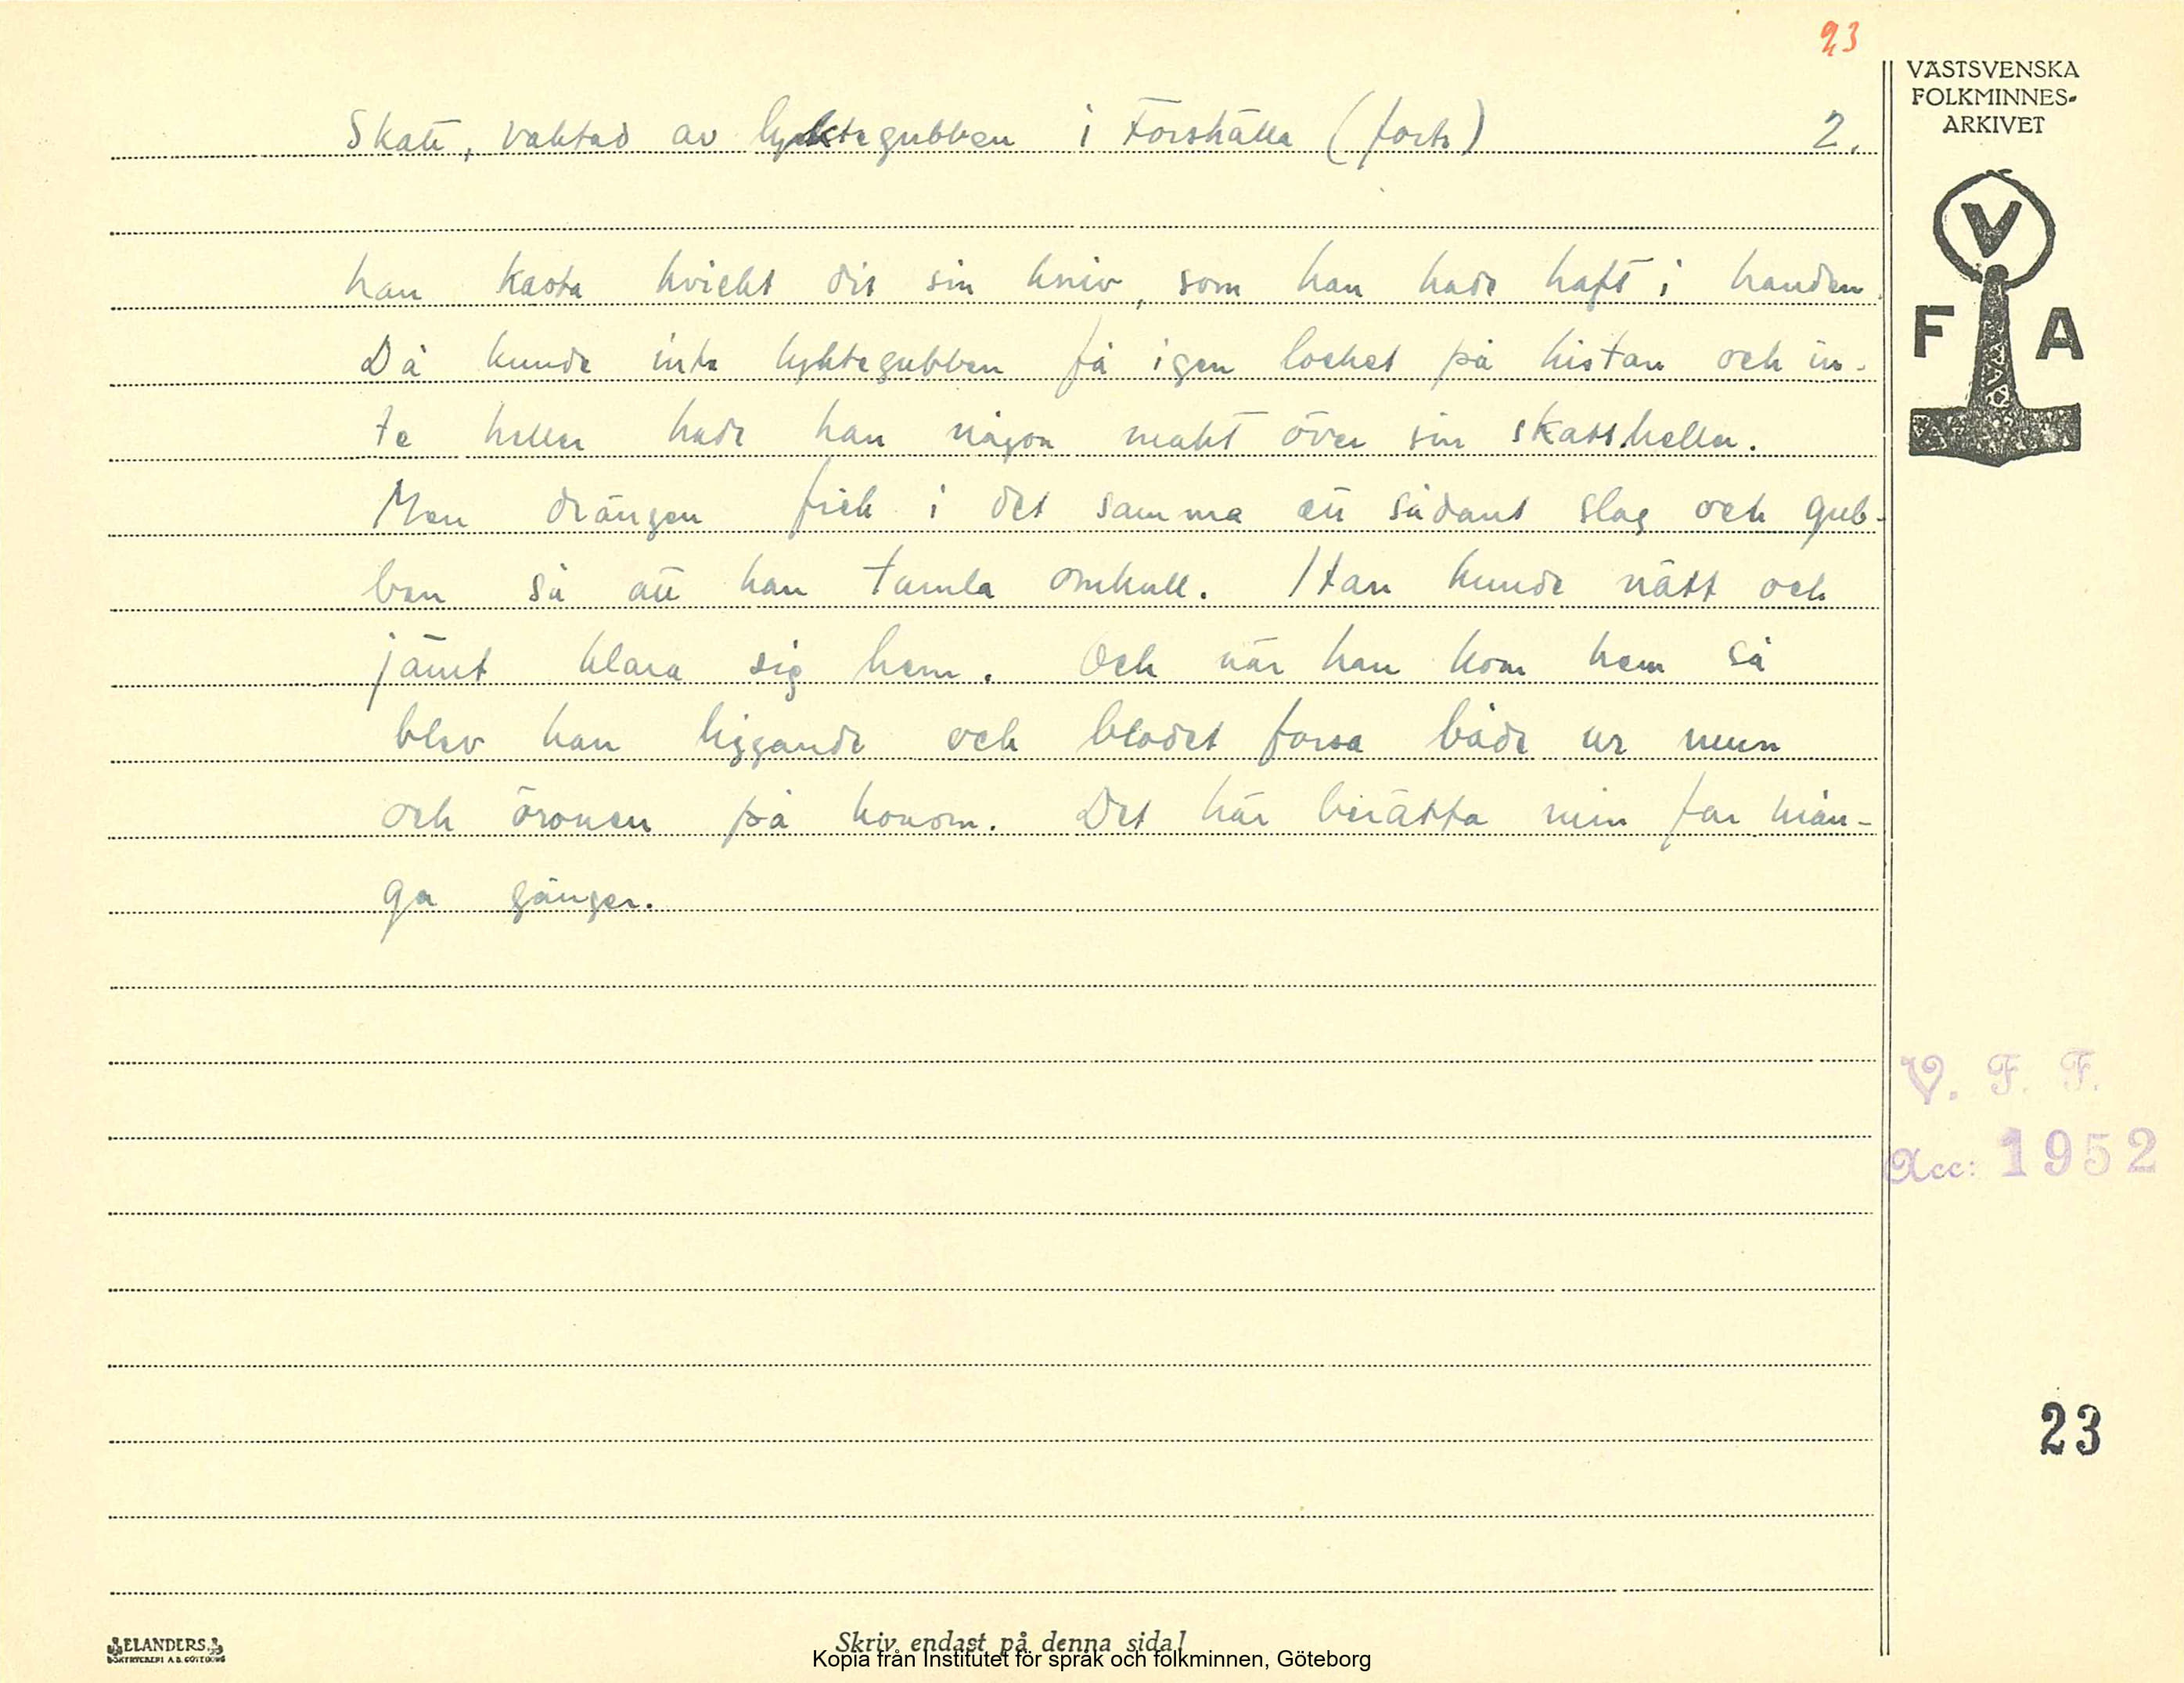 23
VÄSTSVENSKA
FOLKMINNES-
ARKIVET
Skatt, vaktad av lyktegubben i Forshälla (forts) 2.
V
F A
han kasta kvickt dit sin kniv, som han hade haft i handen.
Då kunde inte lyktegubben få igen locket på kistan och in-
te heller hade han någon makt över sin skatt heller.
Men drängen fick i det samma ett sådant slag och gub-
ben så att han tumla omkull. Han kunde nätt och
jämt klara sig hem. Och när han kom hem så
blev han liggande och blodet forsa både ur mun
och öronen på honom. Det här berätta min far mån-
ga gånger.
V. F. F.
Acc: 1952
23
ELANDERS
BOKTRYCKERI A.B. GÖTEBORG
Skriv endast på denna sida!
Kopia från Institutet för språk och folkminnen, Göteborg